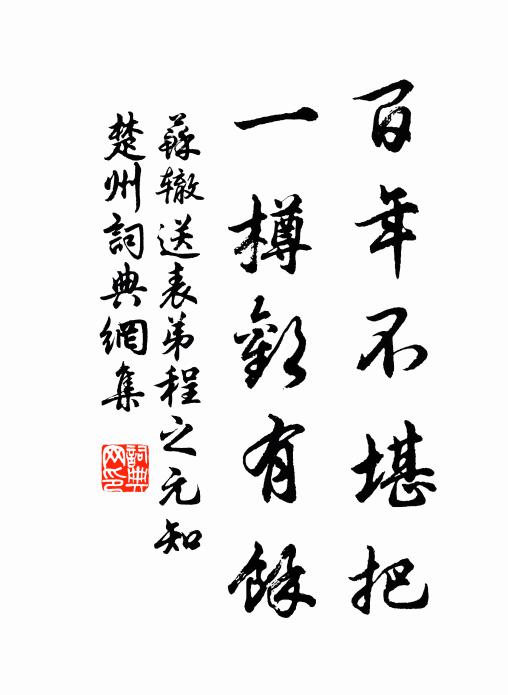 百年不堪把
一樽歡有餘
蘇轍送表弟程之元知
楚州詞典網集
詞典網印